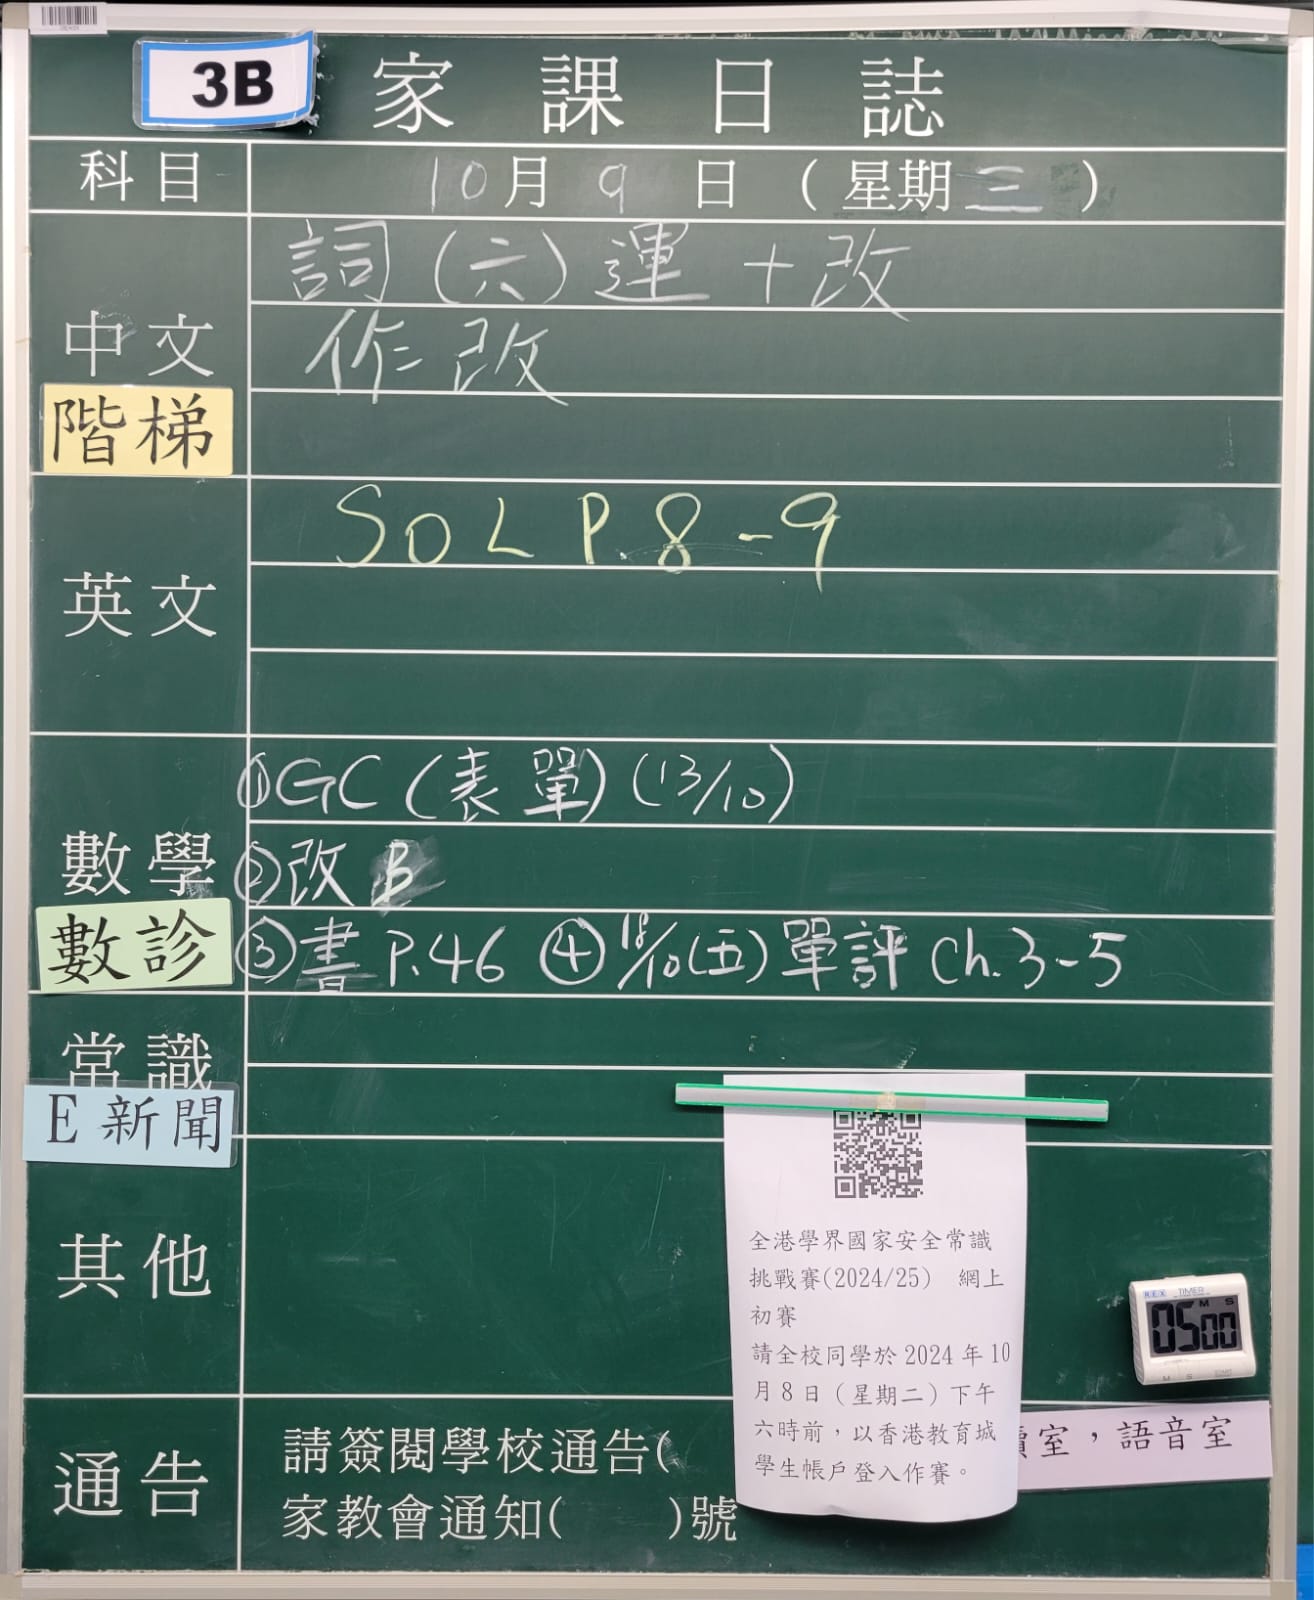 3B 家課日誌
科目 10月9日(星期三)
中文 詞(六)運+改
作改
階梯
英文 SOL P.8-9
數學 ①GC(表單)(13/10)
②改B
數診 ③書 P.46 ④18/10(五)單評 Ch.3-5
常識
E 新聞
其他
全港學界國家安全常識
挑戰賽(2024/25) 網上
初賽
請全校同學於2024年10
月8日(星期二)下午
六時前,以香港教育城
學生帳戶登入作賽。
REX TIMER
M S
0500
室,語音室
通告 請簽閱學校通告(
家教會通知( )號